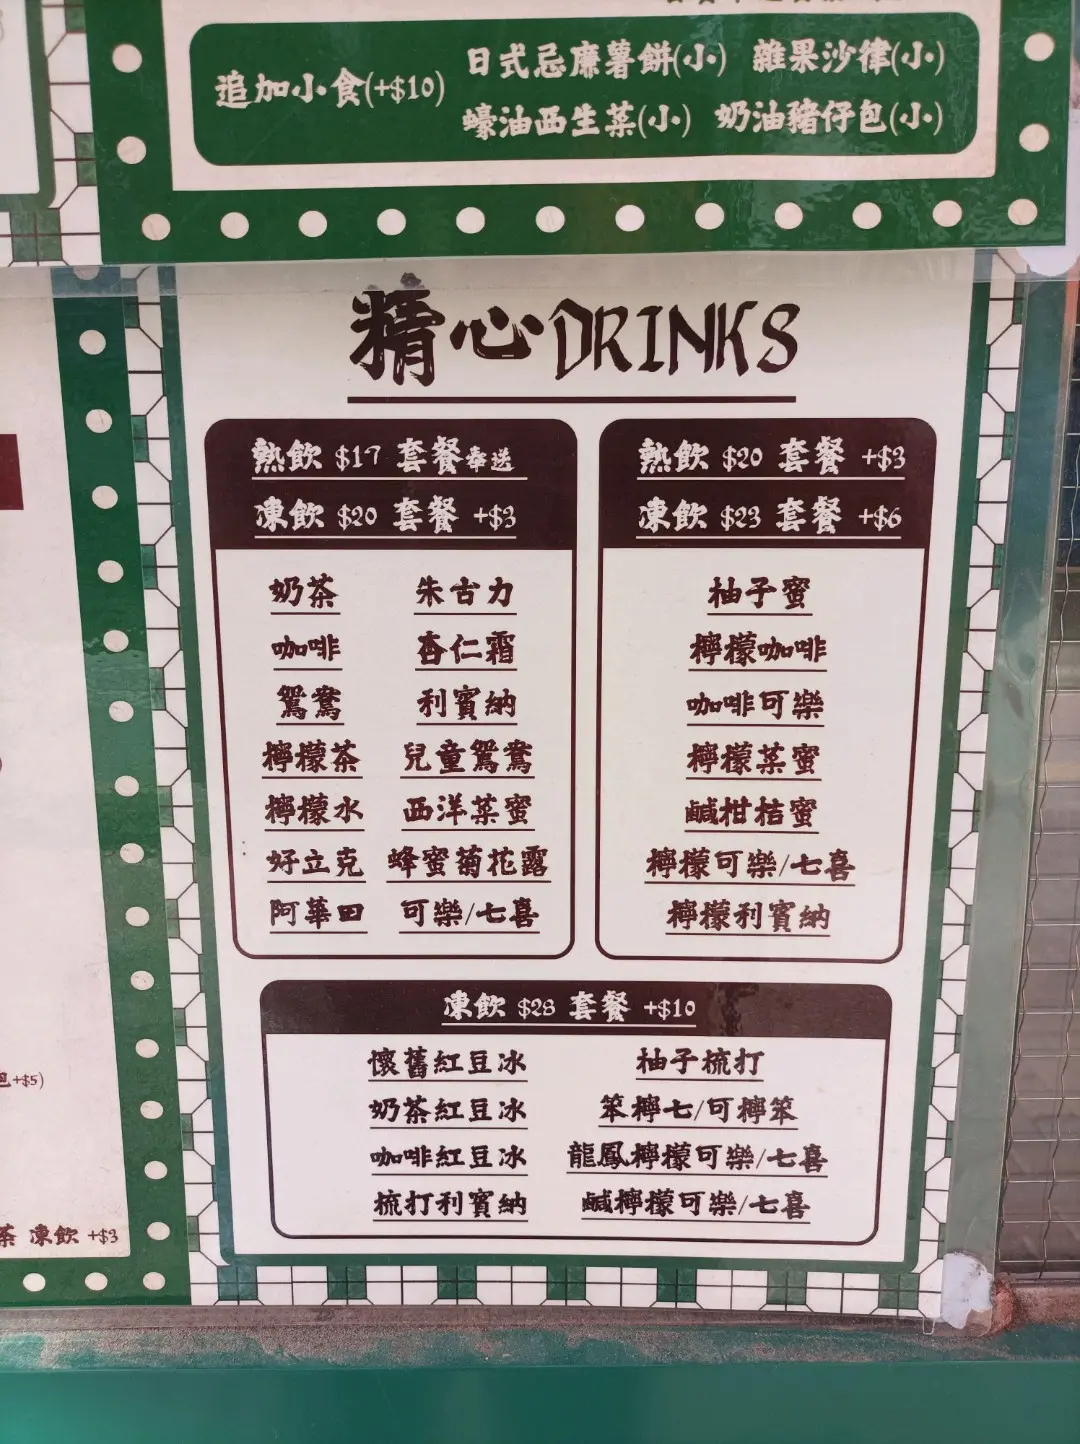 追加小食(+$10) 日式忌廉薯餅(小) 雜果沙律(小)
蠔油西生菜(小) 奶油豬仔包(小)
精心DRINKS
熱飲 $17 套餐奉送
凍飲 $20 套餐 +$3
奶茶 朱古力
咖啡 杏仁霜
鴛鴦 利賓納
檸檬茶 兒童鴛鴦
檸檬水 西洋菜蜜
好立克 蜂蜜菊花露
阿華田 可樂/七喜
熱飲 $20 套餐 +$3
凍飲 $23 套餐 +$6
柚子蜜
檸檬咖啡
咖啡可樂
檸檬菜蜜
鹹柑桔蜜
檸檬可樂/七喜
檸檬利賓納
凍飲 $28 套餐 +$10
懷舊紅豆冰 柚子梳打
奶茶紅豆冰 笨檸七/可檸笨
咖啡紅豆冰 龍鳳檸檬可樂/七喜
梳打利賓納 鹹檸檬可樂/七喜
包+$5)
茶 凍飲 +$3